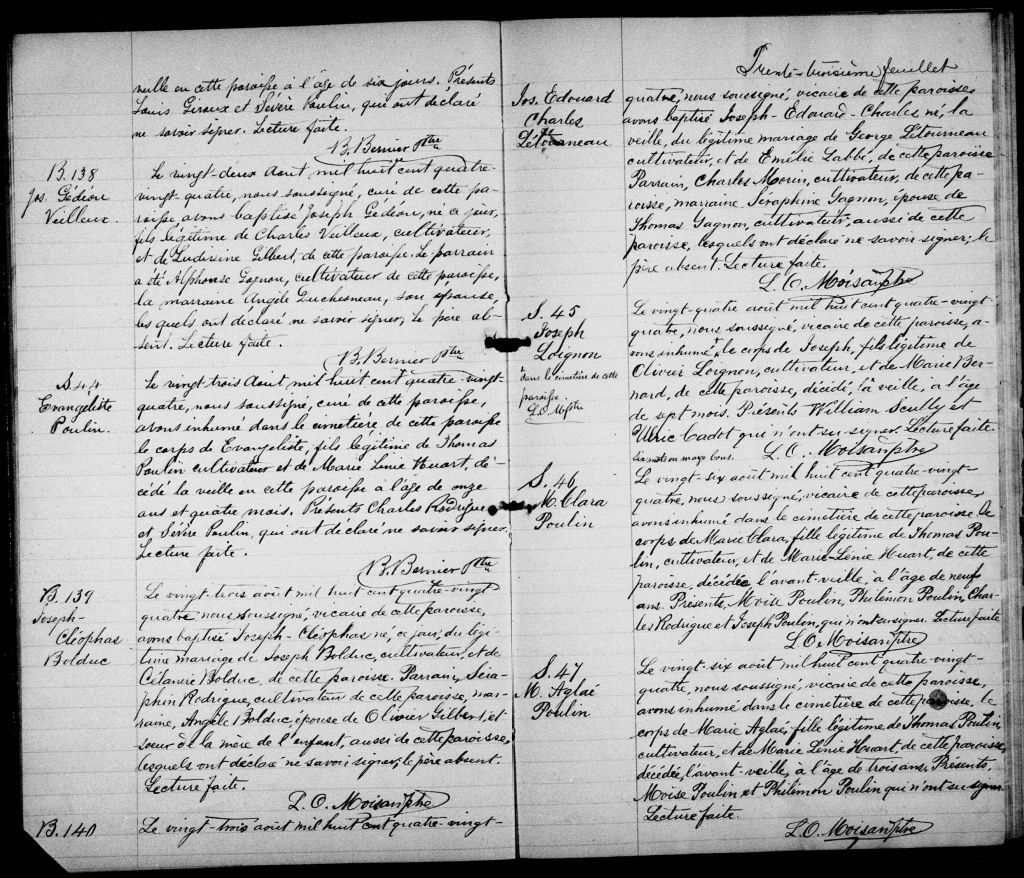 veille en cette paroisse à l'âge de six jours. Présents
Louis Giroux et Sévère Poulin, qui ont déclaré
ne savoir signer. Lecture faite.
B. Bernier Ptre
B. 138
Jos. Gédéon
Veilleux.
Le vingt-deux Aout mil huit cent quatre-
vingt-quatre, nous soussigné, curé de cette pa-
roisse, avons baptisé Joseph Gédéon, né ce jour,
fils légitime de Charles Veilleux, cultivateur,
et de Ludivine Gilbert, de cette paroisse. Le parrain
a été Alphonse Gagnon, cultivateur de cette paroisse,
la marraine Angèle Duchesneau, son épouse,
les quels ont déclaré ne savoir signer; le père ab-
sent. Lecture faite.
B. Bernier Ptre
S. 44
Evangeliste
Poulin.
Le vingt-trois Aout mil huit cent quatre-vingt-
quatre, nous soussigné, curé de cette paroisse,
avons inhumé dans le cimetière de cette paroisse
le corps de Evangeliste, fils légitimie de Thomas
Poulin cultivateur et de Marie Lénie Huart, dé-
cédé la veille en cette paroisse à l'âge de onze
ans et quatre mois. Présents Charles Rodrigue
et Sévère Poulin, qui ont déclaré ne savoir signer.
Lecture faite.
B. Bernier Ptre
B. 139
Joseph-
Cléophas
Bolduc
Le vingt-trois août mil huit cent quatre-vingt
quatre nous soussigné, vicaire de cette paroisse,
avons baptisé Joseph-Cléophas né, ce jour, du légi-
time mariage de Joseph Bolduc, cultivateur, et de
Célanire Bolduc, de cette paroisse. Parrain, Séra-
phin Rodrigue, cultivateur de cette paroisse, mar-
raine, Angèle Bolduc, épouse de Olivier Gilbert, et
soeur de la mère de l'enfant, aussi de cette paroisse,
lesquels ont déclaré ne savoir signer, le père absent.
Lecture faite.
L. O. Moisan Ptre
B. 140
Le vingt-trois août mil huit cent quatre-vingt-
Trente-troisième feuillet
Jos. Edouard
Charles
Létourneau
quatre, nous soussigné, vicaire de cette paroisse
avons baptisé Joseph-Edouard-Charles né, la
veille, du légitime mariage de George Létourneau
cultivateur, et de Emélie Labbé, de cette paroisse
Parrain, Charles Morin, cultivateur, de cette pa-
roisse, marraine, Séraphine Gagnon, épouse de
Thomas Gagnon, cultivateur, aussi de cette
paroisse, lesquels ont déclaré ne savoir signer; le
père absent. Lecture faite.
L. O. Moisan Ptre
S. 45
Joseph
Loignon
dans le cimetière de cette
paroisse
L O M Ptre
Le vingt-quatre août mil huit cent quatre-vingt-
quatre, nous soussigné, vicaire de cette paroisse, a-
vons inhumé le corps de Joseph, fils légitime de
Olivier Loignon, cultivateur, et de Marie Ber-
nard, de cette paroisse, décédé, la veille, à l'âge
de sept mois. Présents William Scully et
Ulric Cadot qui n'ont su signer. Lecture faite
Six mots en marge bons.
L. O. Moisan Ptre
S. 46
M. Clara
Poulin
Le vingt-six août mil huit cent quatre-vingt-
quatre, nous soussigné, vicaire de cette paroisse,
avons inhumé dans le cimetière de cette paroisse le
corps de Marie Clara, fille légitime de Thomas Pou-
lin, cultivateur, et de Marie-Lénie Huart, de cette
paroisse, décédée l'avant-veille, à l'âge de neuf
ans. Présents, Moïse Poulin, Philémon Poulin, Char-
les Rodrigue et Joseph Poulin, qui n'ont su signer. Lecture faite
L. O. Moisan Ptre
S. 47
M. Aglaé
Poulin
Le vingt-six août mil huit cent quatre-vingt-
quatre, nous soussigné, vicaire de cette paroisse,
avons inhumé dans le cimetière de cette paroisse, le
corps de Marie Aglaé, fille légitime de Thomas Poulin,
cultivateur, et de Marie Lénie Huart, de cette paroisse,
décédée, l'avant-veille, à l'âge de trois ans. Présents,
Moïse Poulin et Philémon Poulin qui n'ont su signer.
Lecture faite.
L. O. Moisan Ptre